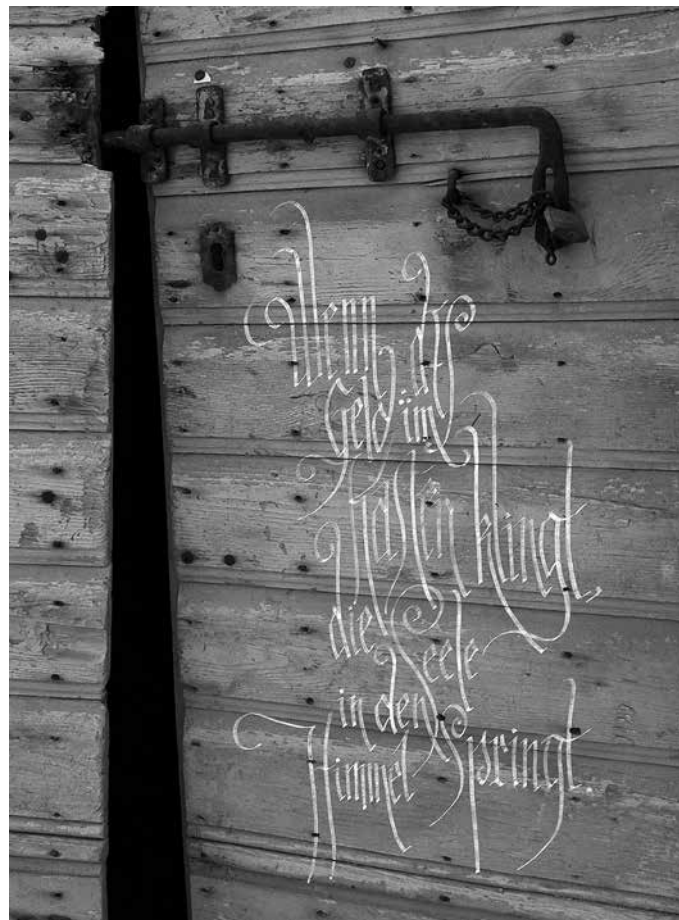 Wenn das
Geld im
Kasten klingt,
die Seele
in den
Himmel Springt.